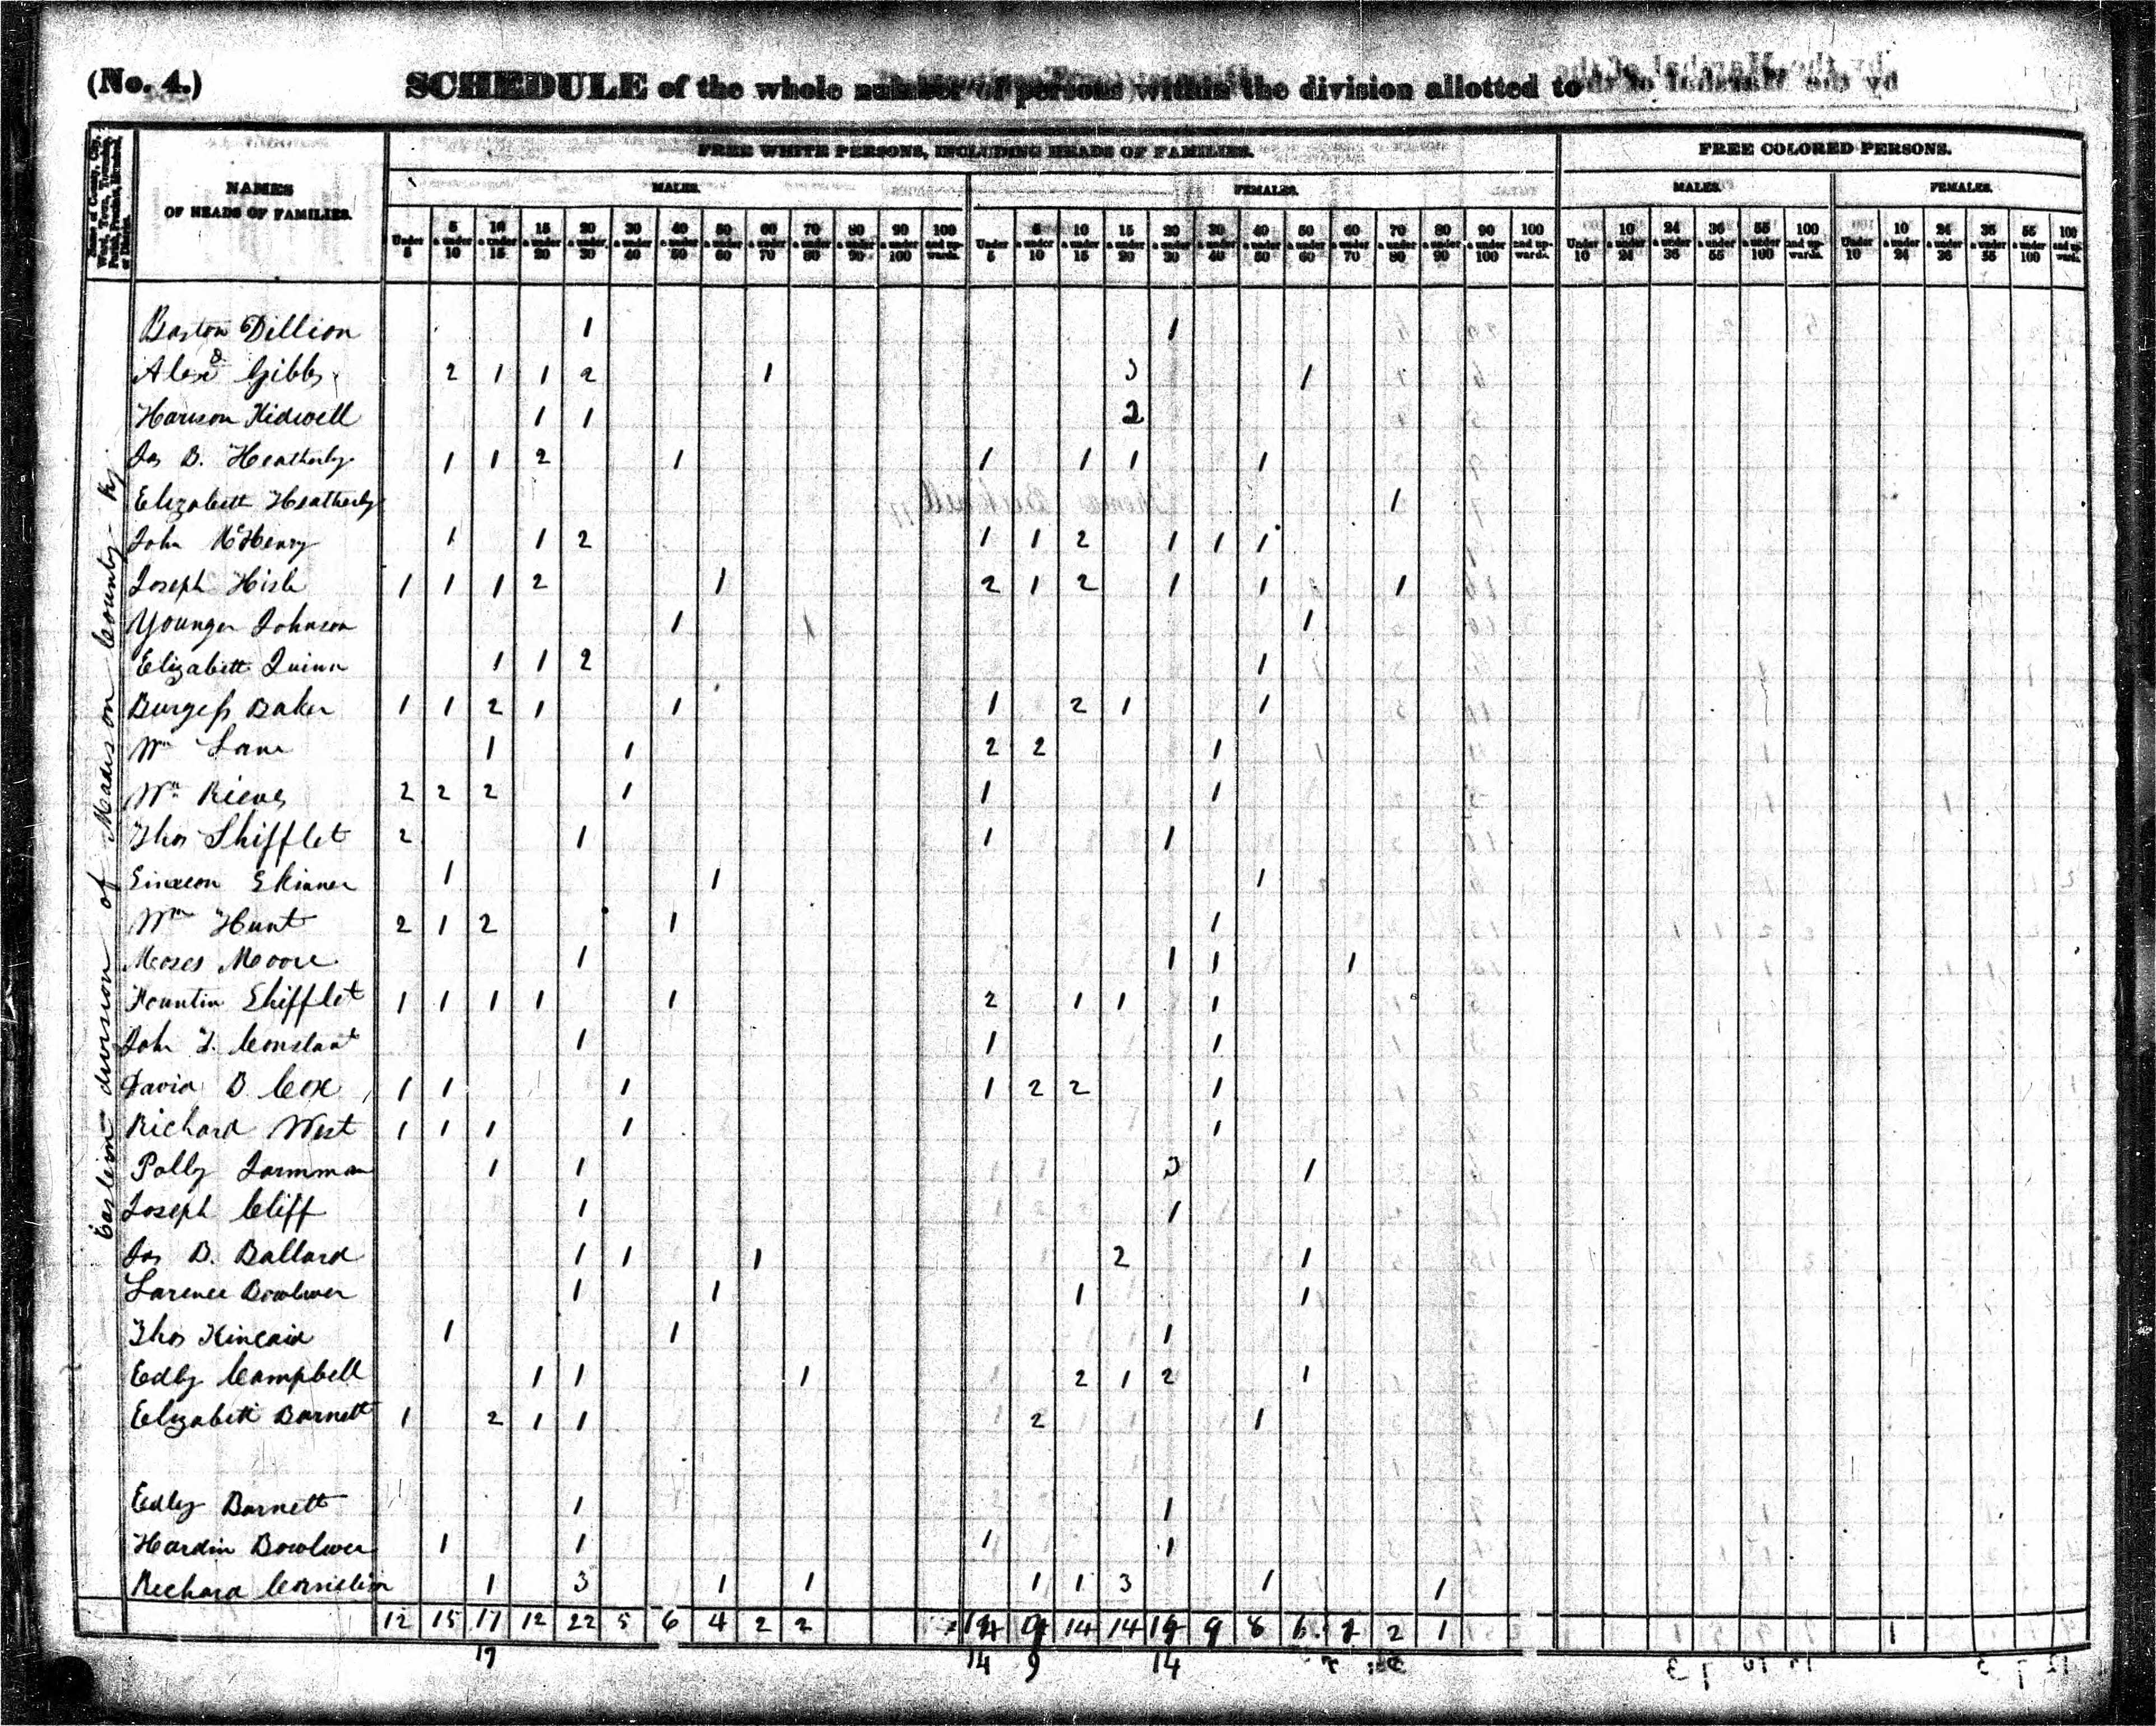 (No. 4.)
SCHEDULE of the whole number of persons within the division allotted to
FREE WHITE PERSONS, INCLUDING HEADS OF FAMILIES.
FREE COLORED PERSONS.
NAMES
OF HEADS OF FAMILIES.
MALES.
FEMALES.
MALES.
FEMALES.
Under 5
5 & under 10
10 & under 15
15 & under 20
20 & under 30
30 & under 40
40 & under 50
50 & under 60
60 & under 70
70 & under 80
80 & under 90
90 & under 100
100 and upwards.
Under 5
5 & under 10
10 & under 15
15 & under 20
20 & under 30
30 & under 40
40 & under 50
50 & under 60
60 & under 70
70 & under 80
80 & under 90
90 & under 100
100 and upwards.
Under 10
10 & under 24
24 & under 36
36 & under 55
55 & under 100
100 and upwards.
Under 10
10 & under 24
24 & under 36
36 & under 55
55 & under 100
100 and upwards.
Eastern division of Madison County Ky.
Dillion 1 1
Alexd Gibbs 2 1 1 2 1 3 1
Harison Kidwell 1 1 2
Jas B. Heatherly 1 1 2 1 1 1 1 1
Elizabeth Heatherly 1
John McHenry 1 1 2 1 1 2 1 1 1
Joseph Hisle 1 1 1 2 1 2 1 2 1 1 1
Younger Johnson 1 1
Elizabeth Quinn 1 1 2 1
Burgess Baker 1 1 2 1 1 1 2 1 1
Wm Lane 1 1 2 2 1
Wm Rieves 2 2 2 1 1 1
Thos Shifflet 2 1 1 1
Simeon Skinner 1 1 1
Wm Hunt 2 1 2 1 1
Moses Moore 1 1 1 1
Fountin Shifflet 1 1 1 1 1 2 1 1 1
John T. Constant 1 1 1
David B Cox 1 1 1 1 2 2 1
Richard West 1 1 1 1 1
Polly 1 1 3 1
Joseph Cliff 1 1
Jas B. Ballard 1 1 1 2 1
1 1 1 1
Thos Kincaid 1 1 1
Edly Campbell 1 1 1 2 1 2 1
Elizabeth Barnett 1 2 1 1 2 1
Edly Barnett 1 1
Hardin 1 1 1 1
Richard Cornelison 1 3 1 1 1 1 3 1 1
12 15 17 12 22 5 6 4 2 2 14 9 14 14 9 8 6 2 2 1 1
17 14 9 14